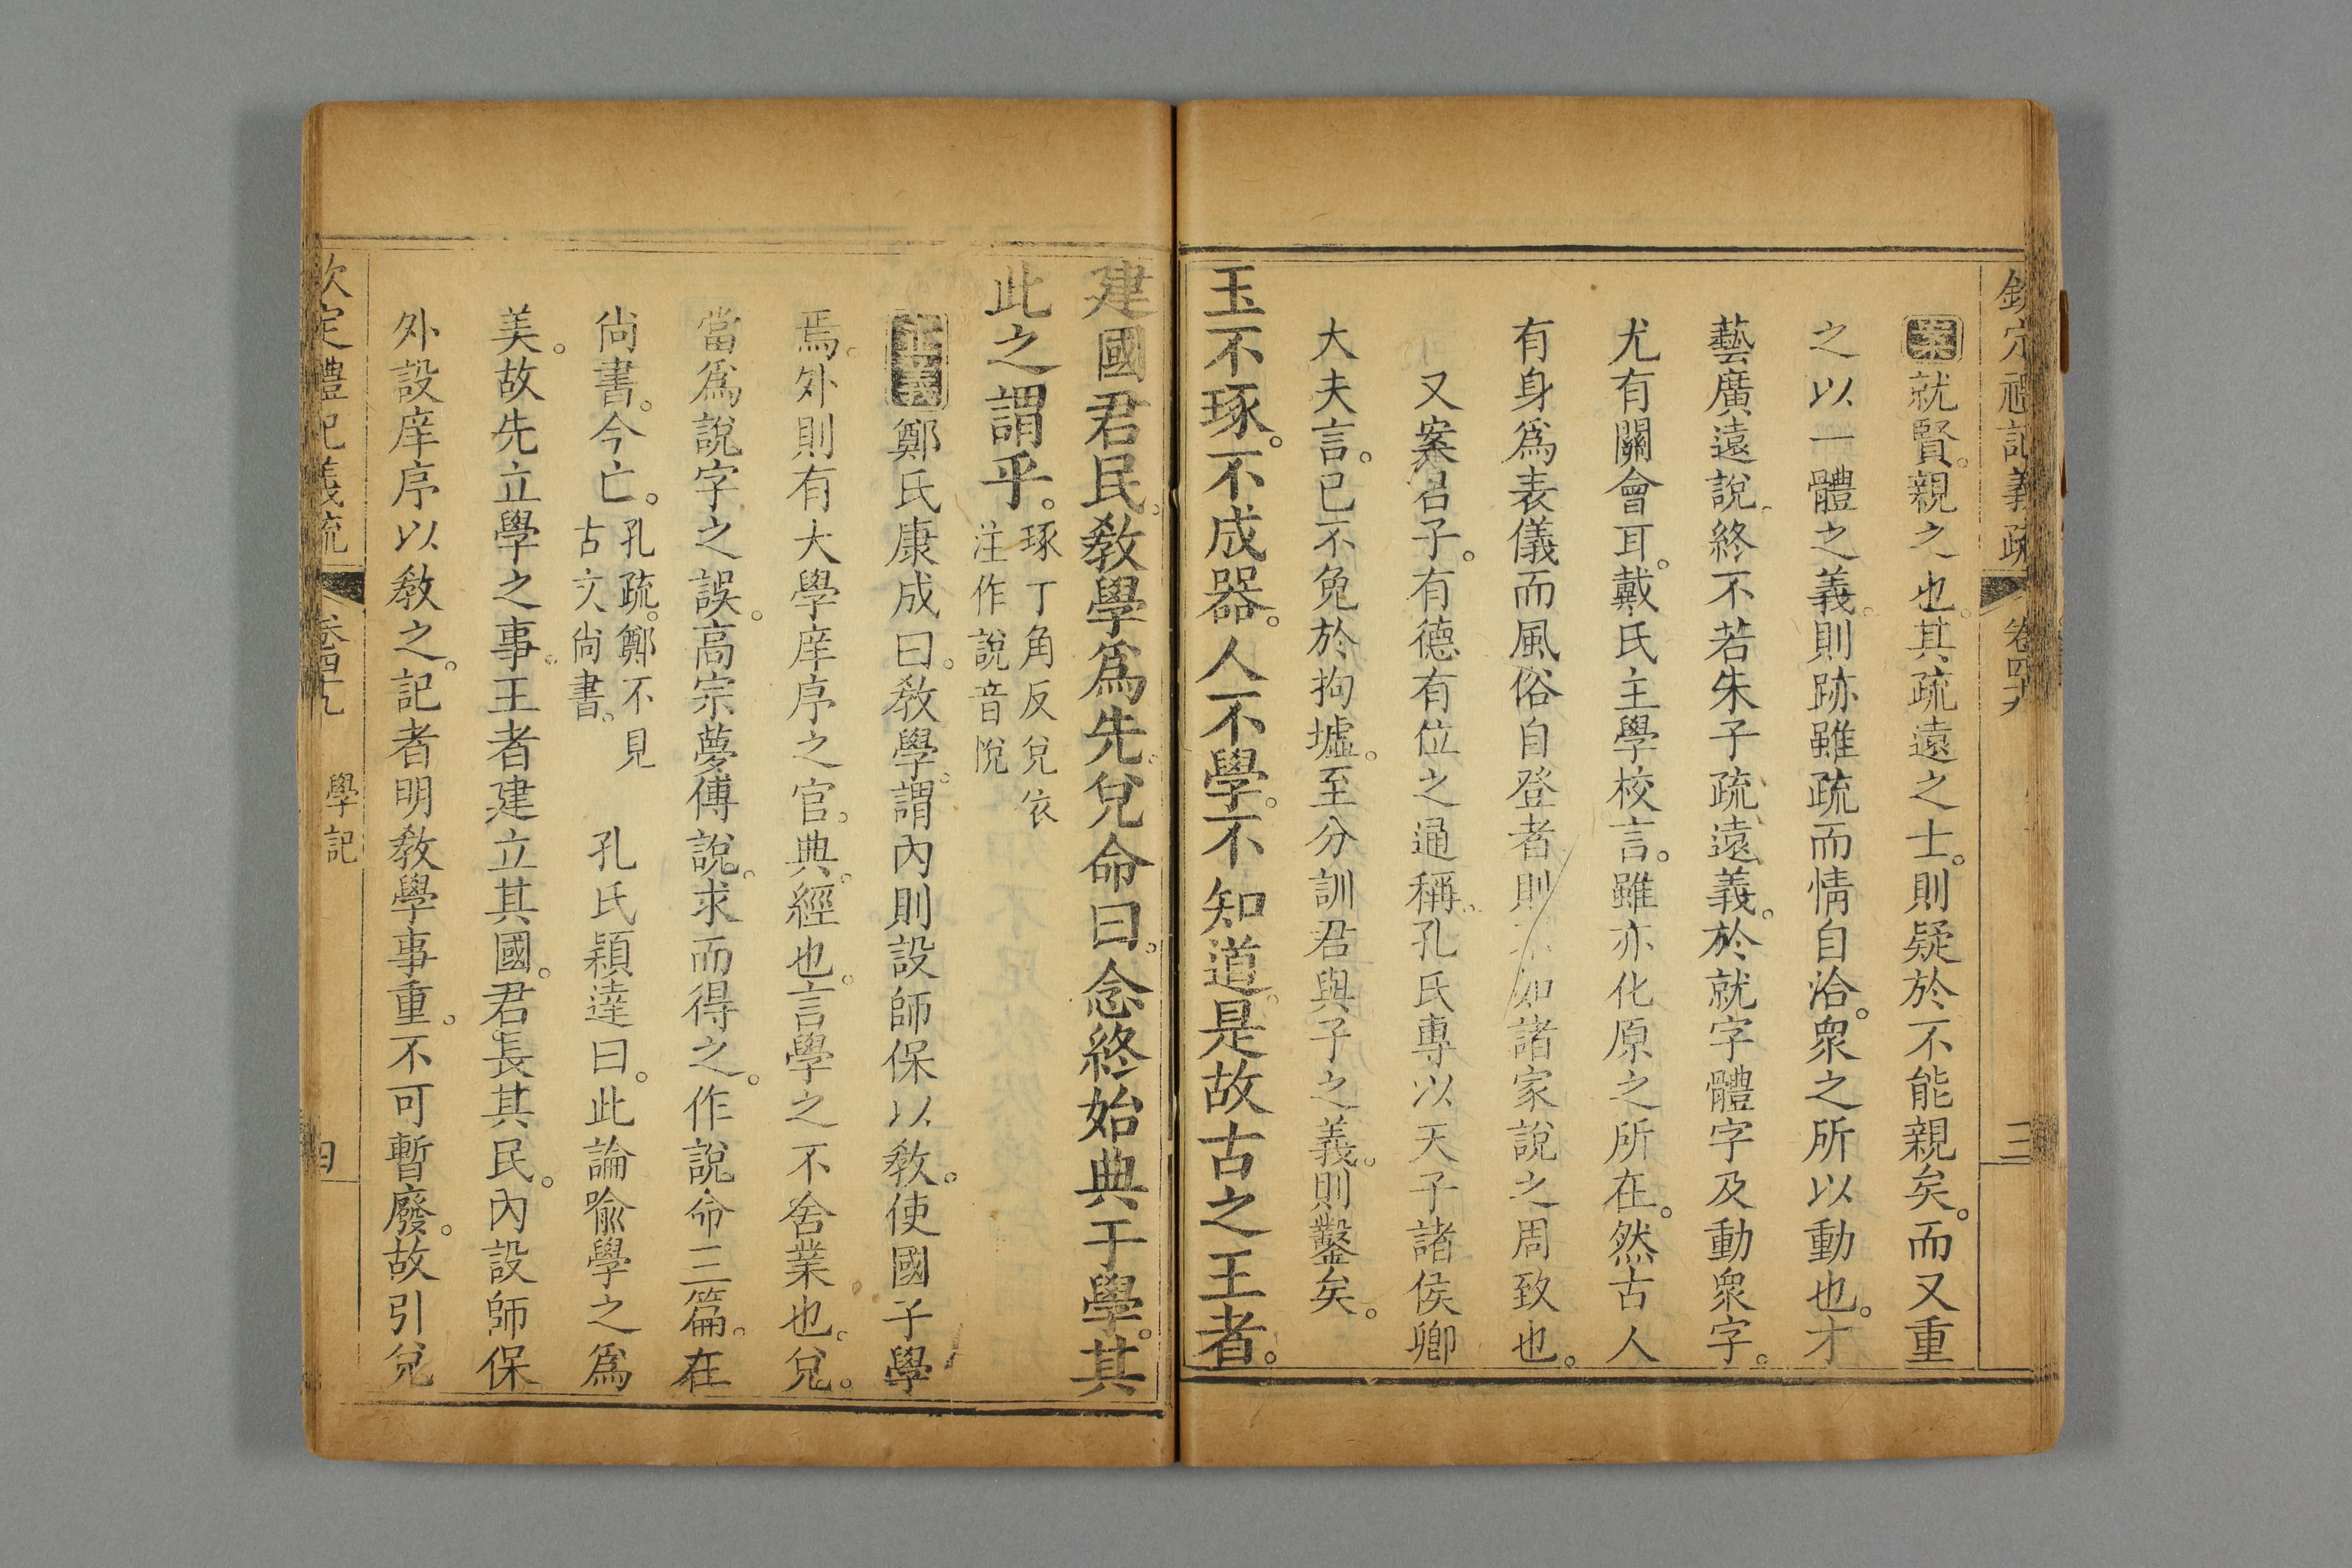 欽定禮記義疏 卷四十九 三
案就賢。親之也。其疏遠之士。則疑於不能親矣。而又重
之以一體之義。則跡雖疏而情自洽。衆之所以動也。才
藝廣遠說。終不若朱子疏遠義。於就字體字及動衆字。
尤有關會耳。戴氏主學校言。雖亦化原之所在。然古人
有身爲表儀而風俗自登者則不如諸家說之周致也。
又案君子。有德有位之通稱。孔氏專以天子諸侯卿
大夫言。已不免於拘墟。至分訓君與子之義。則鑿矣。
玉不琢。不成器。人不學。不知道。是故古之王者。
建國君民。敎學爲先。兌命曰。念終始典于學。其
此之謂乎。琢丁角反兌依
注作說音悅
正義鄭氏康成曰。敎學。謂內則設師保以敎。使國子學
焉。外則有大學庠序之官。典。經也。言學之不舍業也。兌。
當爲說字之誤。高宗夢傅說。求而得之。作說命三篇。在
尙書。今亡。孔疏。鄭不見
古文尙書。 孔氏穎達曰。此論喻學之爲
美。故先立學之事。王者建立其國。君長其民。內設師保
外設庠序以敎之。記者明敎學事重。不可暫廢。故引兌
欽定禮記義疏 卷四十九 學記 四